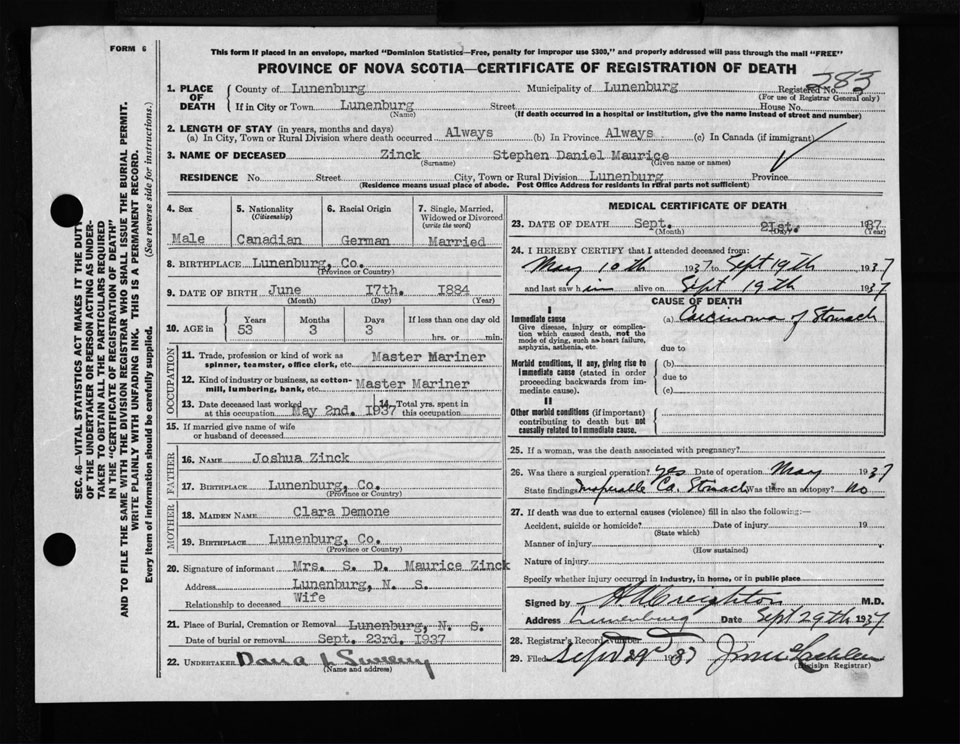 FORM 6
This form if placed in an envelope, marked "Dominion Statistics—Free, penalty for improper use $300," and properly addressed will pass through the mail "FREE"
PROVINCE OF NOVA SCOTIA—CERTIFICATE OF REGISTRATION OF DEATH
283
1. PLACE OF DEATH County of Lunenburg Municipality of Lunenburg Registered No.
(For use of Registrar General only)
If in City or Town Lunenburg Street House No.
(Name) (If death occurred in a hospital or institution, give the name instead of street and number)
2. LENGTH OF STAY (in years, months and days)
(a) In City, Town or Rural Division where death occurred Always (b) In Province Always (c) In Canada (if immigrant)
3. NAME OF DECEASED Zinck Stephen Daniel Maurice
(Surname) (Given name or names)
RESIDENCE No. Street City, Town or Rural Division Lunenburg Province
(Residence means usual place of abode. Post Office Address for residents in rural parts not sufficient)
SEC. 46—VITAL STATISTICS ACT MAKES IT THE DUTY
OF THE UNDERTAKER OR PERSON ACTING AS UNDER-
TAKER TO OBTAIN ALL THE PARTICULARS REQUIRED
IN THE "CERTIFICATE OF REGISTRATION OF DEATH"
AND TO FILE THE SAME WITH THE DIVISION REGISTRAR WHO SHALL ISSUE THE BURIAL PERMIT.
WRITE PLAINLY WITH UNFADING INK. THIS IS A PERMANENT RECORD.
Every item of information should be carefully supplied. (See reverse side for instructions.)
4. Sex
Male
5. Nationality
(Citizenship)
Canadian
6. Racial Origin
German
7. Single, Married,
Widowed or Divorced
(write the word)
Married
8. BIRTHPLACE Lunenburg, Co.
(Province or Country)
9. DATE OF BIRTH June 17th. 1884
(Month) (Day) (Year)
10. AGE in Years Months Days If less than one day old
53 3 3 hrs. or min.
OCCUPATION
11. Trade, profession or kind of work as
spinner, teamster, office clerk, etc. Master Mariner
12. Kind of industry or business, as cotton-
mill, lumbering, bank, etc. Master Mariner
13. Date deceased last worked
at this occupation May 2nd. 1937
14. Total yrs. spent in
this occupation
15. If married give name of wife
or husband of deceased
FATHER
16. NAME Joshua Zinck
17. BIRTHPLACE Lunenburg, Co.
(Province or Country)
MOTHER
18. MAIDEN NAME Clara Demone
19. BIRTHPLACE Lunenburg, Co.
(Province or Country)
20. Signature of informant Mrs. S. D. Maurice Zinck
Address Lunenburg, N. S.
Relationship to deceased Wife
21. Place of Burial, Cremation or Removal Lunenburg, N. S.
Date of burial or removal Sept. 23rd, 1937
22. UNDERTAKER Dana J Sweeny
(Name and address)
MEDICAL CERTIFICATE OF DEATH
23. DATE OF DEATH Sept. 21st. 1937
(Month) (Day) (Year)
24. I HEREBY CERTIFY that I attended deceased from:
May 10th 1937 to Sept 19th 1937
and last saw him alive on Sept 19th 1937
CAUSE OF DEATH
I
Immediate cause (a) Carcinoma of Stomach
Give disease, injury or complica-
tion which caused death, not the
mode of dying, such as heart failure,
asphyxia, asthenia, etc. due to
Morbid conditions, if any, giving rise to
immediate cause (stated in order
proceeding backwards from im-
mediate cause). (b)
due to
(c)
II
Other morbid conditions (if important)
contributing to death but not
causally related to immediate cause.
25. If a woman, was the death associated with pregnancy?
26. Was there a surgical operation? Yes Date of operation May 1937
State findings Inoperable Ca. Stomach Was there an autopsy? No
27. If death was due to external causes (violence) fill in also the following:—
Accident, suicide or homicide? Date of injury 19
(State which)
Manner of injury
(How sustained)
Nature of injury
Specify whether injury occurred in industry, in home, or in public place
Signed by H A Creighton M.D.
Address Lunenburg Date Sept 29th 1937
28. Registrar's Record Number
29. Filed Sept 29 1937
(Division Registrar)